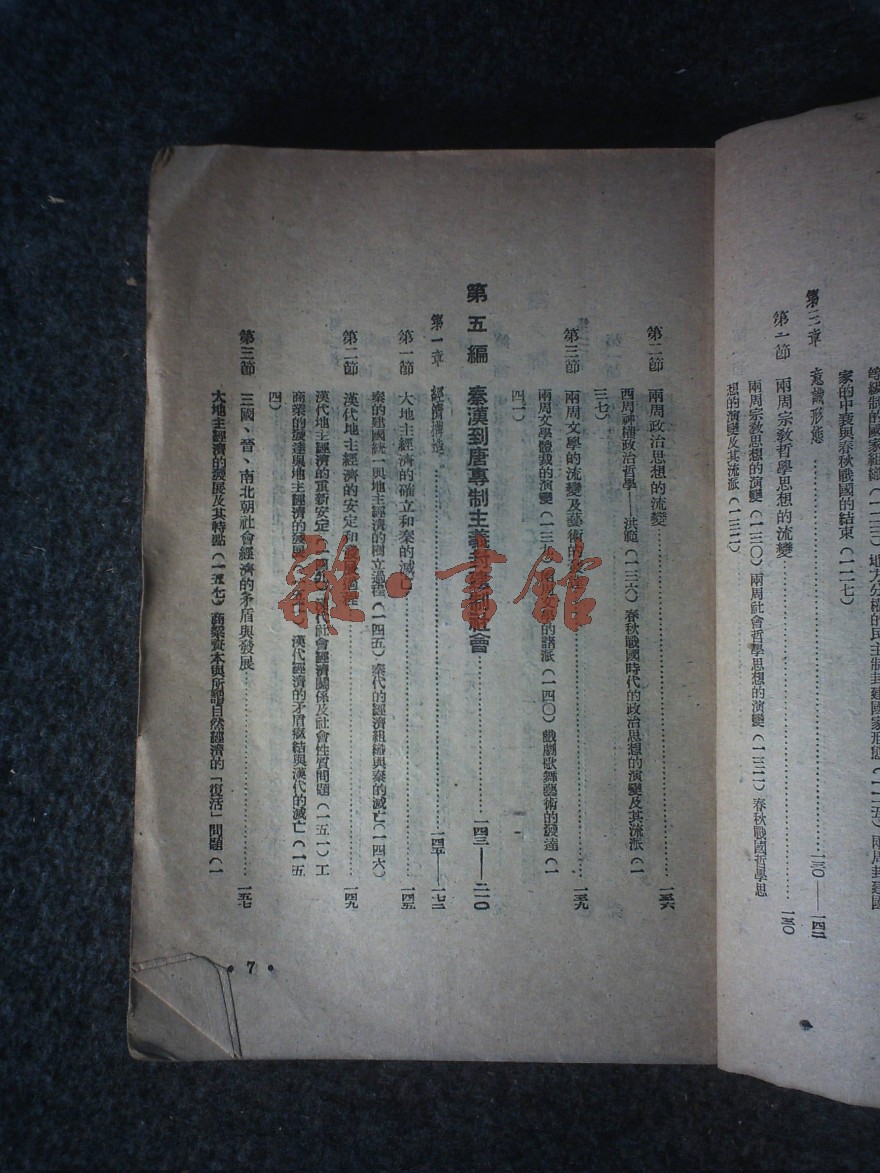 等級制的國家組織（一二三）地方分權的民主制封建國家形態（一二五）兩周封建國
家的中衰與春秋戰國的結束（一二七）
第三章 意識形態……一三〇——一四二
第一節 兩周宗教哲學思想的流變……一三〇
兩周宗教思想的演變（一三〇）兩周社會哲學思想的演變（一三二）春秋戰國哲學思
想的演變及其流派（一三二）
第二節 兩周政治思想的流變……一三六
西周神權政治哲學——洪範（一三六）春秋戰國時代的政治思想的演變及其流派（一
三七）
第三節 兩周文學的流變及藝術的……一三九
兩周文學體裁的演變（一三九）的諸派（一四〇）戲劇歌舞藝術的發達（一
四一）
第五編 秦漢到唐專制主義封建制社會……一四三——二一〇
第一章 經濟構造……一四五——一七二
第一節 大地主經濟的確立和秦的滅亡……一四五
秦的建國統一與地主經濟的樹立過程（一四五）秦代的經濟組織與秦的滅亡（一四六）
第二節 漢代地主經濟的安定和過程……一四九
漢代地主經濟的重新安定（一四九）漢代社會經濟關係及社會性質問題（一五一）工
商業的發達與地主經濟的發展漢代經濟的矛盾癥結與漢代的滅亡（一五
四）
第三節 三國、晉、南北朝社會經濟的矛盾與發展……一五七
大地主經濟的發展及其特點（一五七）商業資本與所謂自然經濟的「復活」問題（一
·7·
雜·書館